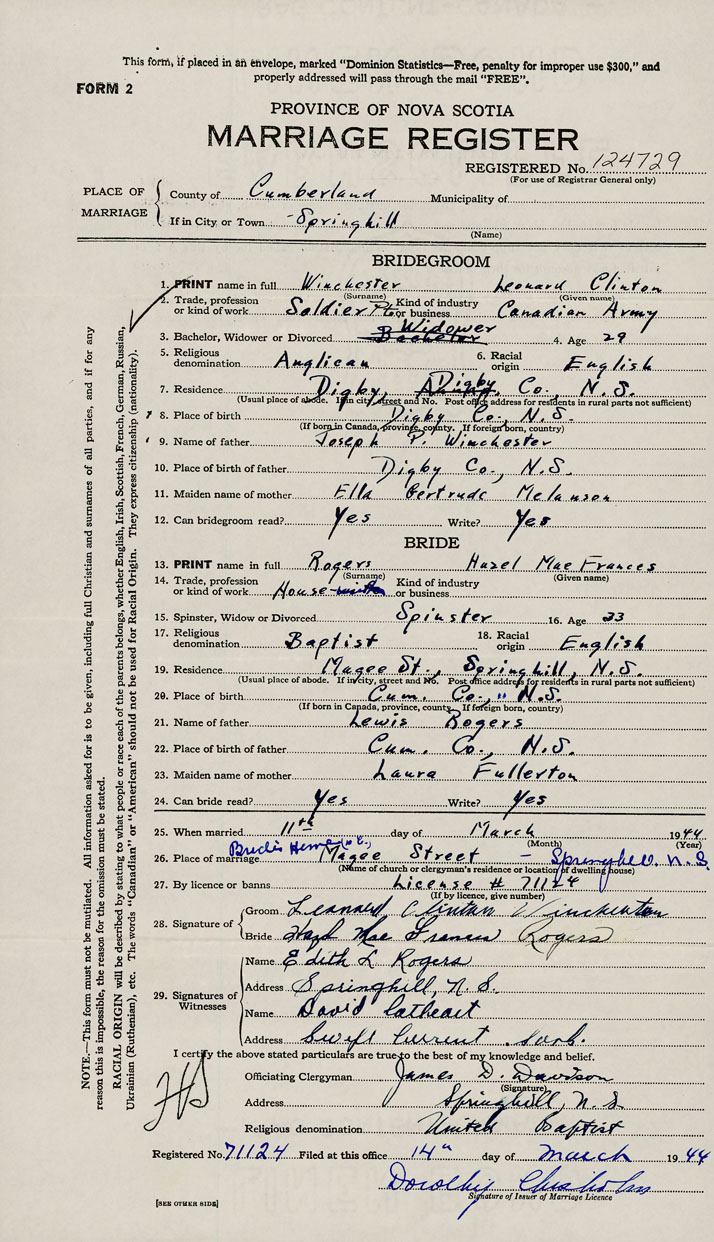 This form, if placed in an envelope, marked “Dominion Statistics—Free, penalty for improper use $300,” and
properly addressed will pass through the mail “FREE”.
FORM 2
PROVINCE OF NOVA SCOTIA
MARRIAGE REGISTER
REGISTERED No. 124729
(For use of Registrar General only)
PLACE OF MARRIAGE
County of Cumberland Municipality of
If in City or Town Springhill
(Name)
BRIDEGROOM
1. PRINT name in full Winchester Leonard Clinton
(Surname) (Given name)
2. Trade, profession or kind of work Soldier Kind of industry or business Canadian Army
3. Bachelor, Widower or Divorced Widower Bachelor 4. Age 29
5. Religious denomination Anglican 6. Racial origin English
7. Residence Digby, Digby Co., N.S.
(Usual place of abode. If in city, street and No. Post office address for residents in rural parts not sufficient)
8. Place of birth Digby Co., N.S.
(If born in Canada, province, county. If foreign born, country)
9. Name of father Joseph P. Winchester
10. Place of birth of father Digby Co., N.S.
11. Maiden name of mother Ella Gertrude Melanson
12. Can bridegroom read? Yes Write? Yes
BRIDE
13. PRINT name in full Rogers Hazel Mae Frances
(Surname) (Given name)
14. Trade, profession or kind of work House- Kind of industry or business
15. Spinster, Widow or Divorced Spinster 16. Age 33
17. Religious denomination Baptist 18. Racial origin English
19. Residence Magee St., Springhill, N.S.
(Usual place of abode. If in city, street and No. Post office address for residents in rural parts not sufficient)
20. Place of birth Cum. Co., " N.S.
(If born in Canada, province, county. If foreign born, country)
21. Name of father Lewis Rogers
22. Place of birth of father Cum. Co., N.S.
23. Maiden name of mother Laura Fullerton
24. Can bride read? Yes Write? Yes
25. When married 11th day of March 1944
(Month) (Year)
Bride's Home
26. Place of marriage Magee Street – Springhill. N.S.
(Name of church or clergyman's residence or location of dwelling house)
27. By licence or banns License # 71124
(If by licence, give number)
28. Signature of
Groom Leonard Clinton Winchester
Bride Hazel Mae Frances Rogers
29. Signatures of Witnesses
Name Edith L Rogers
Address Springhill, N.S.
Name David Cathcart
Address Swift Current. Sask.
I certify the above stated particulars are true to the best of my knowledge and belief.
Officiating Clergyman James D. Davison
(Signature)
Address Springhill, N.S
Religious denomination United Baptist
Registered No. 71124 Filed at this office 14" day of March 1944
Dorothy Chisholm
Signature of Issuer of Marriage Licence
[SEE OTHER SIDE]
NOTE.—This form must not be mutilated. All information asked for is to be given, including full Christian and surnames of all parties, and if for any
reason this is impossible, the reason for the omission must be stated.
RACIAL ORIGIN will be described by stating to what people or race each of the parents belongs, whether English, Irish, Scottish, French, German, Russian,
Ukrainian (Ruthenian), etc. The words “Canadian” or “American” should not be used for Racial Origin. They express citizenship (nationality).